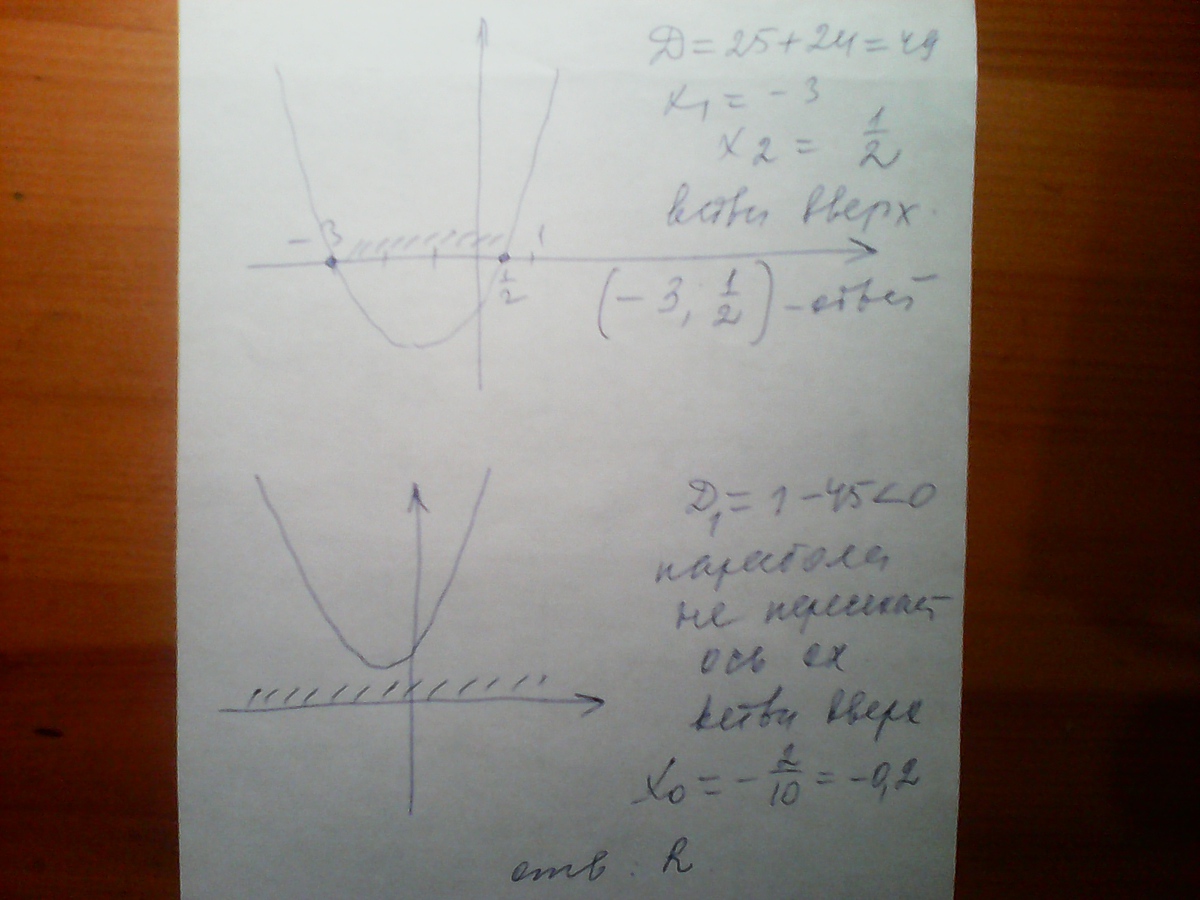 D = 25 + 24 = 49
x₁ = -3
x2 = 1/2
ветви вверх.
-3 1
1/2
(-3; 1/2) - ответ
D₁ = 1 - 45 < 0
парабола
не пересекает
ось ох
ветви вверх
x₀ = - 2/10 = -0,2
отв. R